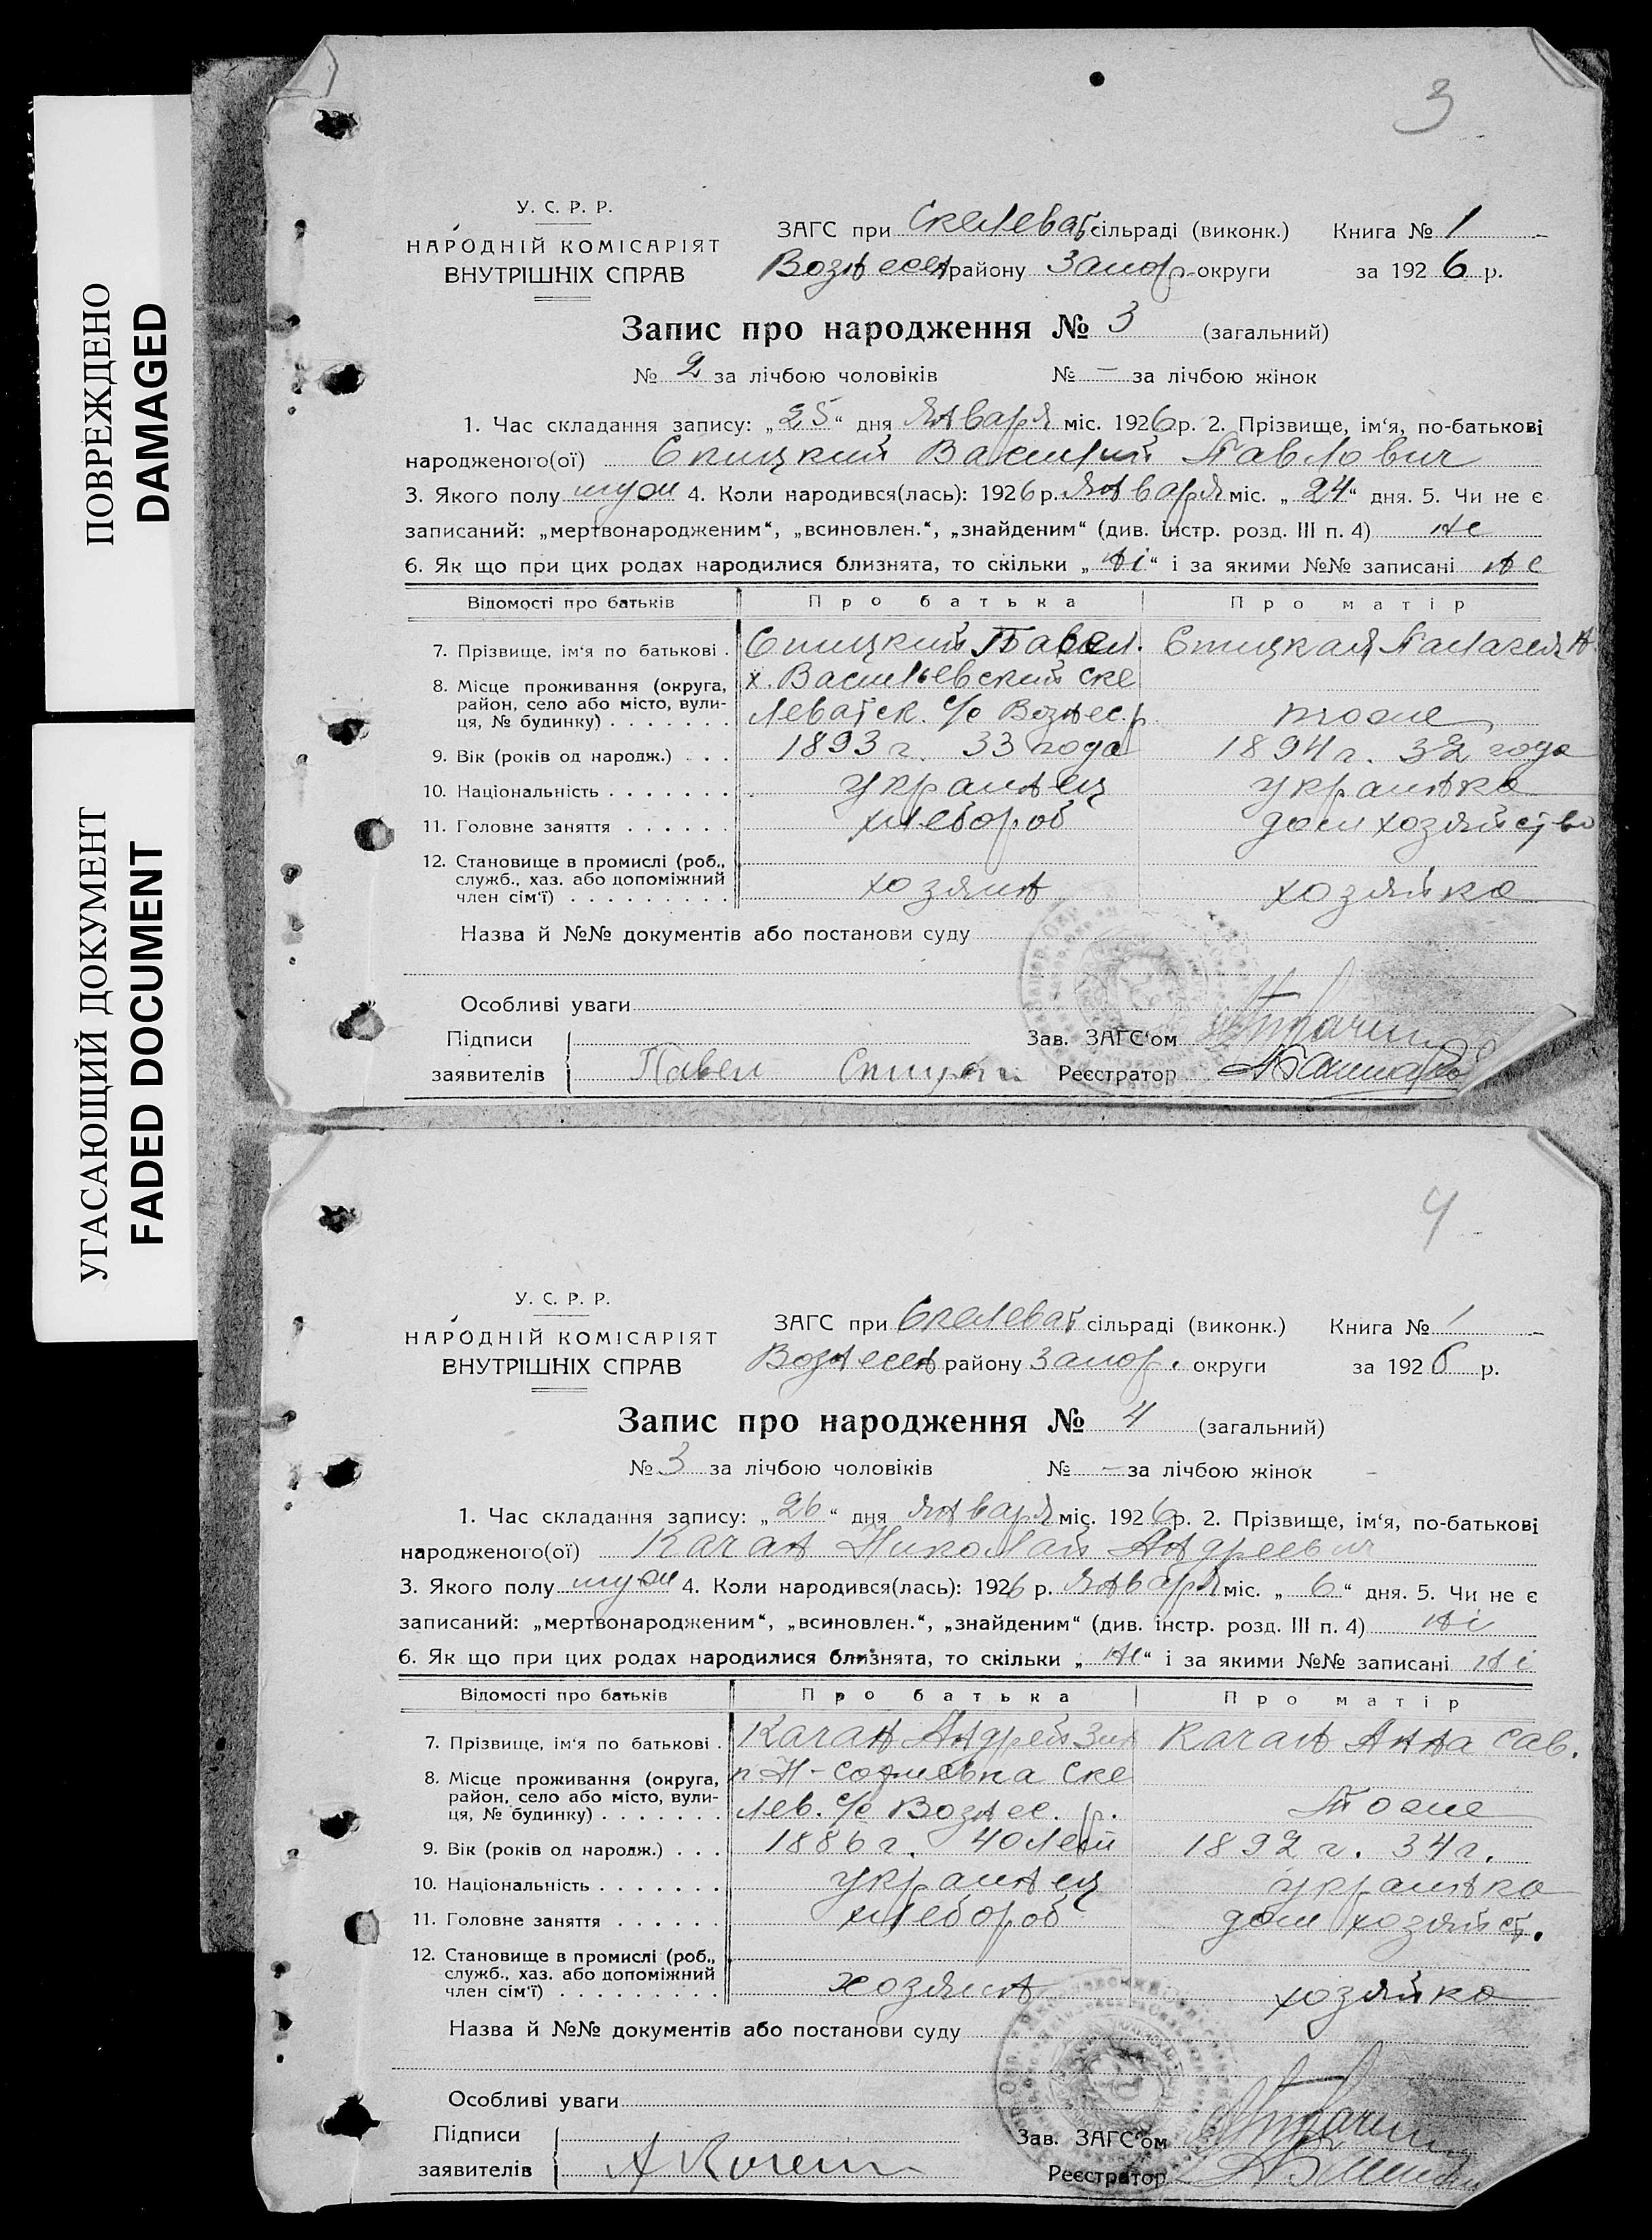 ПОВРЕЖДЕНО
DAMAGED
УГАСАЮЩИЙ ДОКУМЕНТ
FADED DOCUMENT
3
У. С. Р. Р.
НАРОДНІЙ КОМІСАРІЯТ
ВНУТРІШНІХ СПРАВ
ЗАГС при Скелеват сільраді (виконк.) Книга № 1
Вознесен району Запор. округи за 1926 р.
Запис про народження № 3 (загальний)
№ 2 за лічбою чоловіків № — за лічбою жінок
1. Час складання запису: „25“ дня Января міс. 1926 р. 2. Прізвище, ім‘я, по-батькові
народженого(ої) Спицкий Василий Павлович
3. Якого полу муж 4. Коли народився(лась): 1926 р. Января міс. „24“ дня. 5. Чи не є
записаний: „мертвонародженим“, „всиновлен.“, „знайденим“ (див. інстр. розд. III п. 4) не
6. Як що при цих родах народилися близнята, то скільки „ні“ і за якими №№ записані не
Відомості про батьків Про батька Про матір
7. Прізвище, ім‘я по батькові . Спицкий Павел. Спицкая Палагея Н.
8. Місце проживання (округа, х. Васильевский Ске
район, село або місто, вули-
ця, № будинку) . . . . . . . леватск. с/с Вознес. р. тоже
9. Вік (років од народж.) . . . 1893 г. 33 года 1894 г. 32 года
10. Національність . . . . . . . украинец украинка
11. Головне заняття . . . . . . хлебороб дом хозяйство
12. Становище в промислі (роб.,
служб., хаз. або допоміжний
член сім‘ї) . . . . . . . . . . хозяин хозяйка
Назва й №№ документів або постанови суду
Особливі уваги
Підписи Зав. ЗАГС‘ом
заявителів Павел Спицкий Реєстратор
4
У. С. Р. Р.
НАРОДНІЙ КОМІСАРІЯТ
ВНУТРІШНІХ СПРАВ
ЗАГС при Скелеват сільраді (виконк.) Книга № 1
Вознесен району Запор. округи за 1926 р.
Запис про народження № 4 (загальний)
№ 3 за лічбою чоловіків № — за лічбою жінок
1. Час складання запису: „26“ дня Января міс. 1926 р. 2. Прізвище, ім‘я, по-батькові
народженого(ої) Качан Николай Андреевич
3. Якого полу муж 4. Коли народився(лась): 1926 р. Января міс. „6“ дня. 5. Чи не є
записаний: „мертвонародженим“, „всиновлен.“, „знайденим“ (див. інстр. розд. III п. 4) ні
6. Як що при цих родах народилися близнята, то скільки „ні“ і за якими №№ записані ні
Відомості про батьків Про батька Про матір
7. Прізвище, ім‘я по батькові . Качан Андрей Зин Качан Анна Сав.
8. Місце проживання (округа, п Н-Софиевка Ске
район, село або місто, вули-
ця, № будинку) . . . . . . . лев. с/с Вознес. р. Тоже
9. Вік (років од народж.) . . . 1886 г. 40 лет 1892 г. 34 г.
10. Національність . . . . . . . украинец украинка
11. Головне заняття . . . . . . хлебороб дом хозяйст.
12. Становище в промислі (роб.,
служб., хаз. або допоміжний
член сім‘ї) . . . . . . . . . . хозяин хозяйка
Назва й №№ документів або постанови суду
Особливі уваги
Підписи Зав. ЗАГС‘ом
заявителів Реєстратор